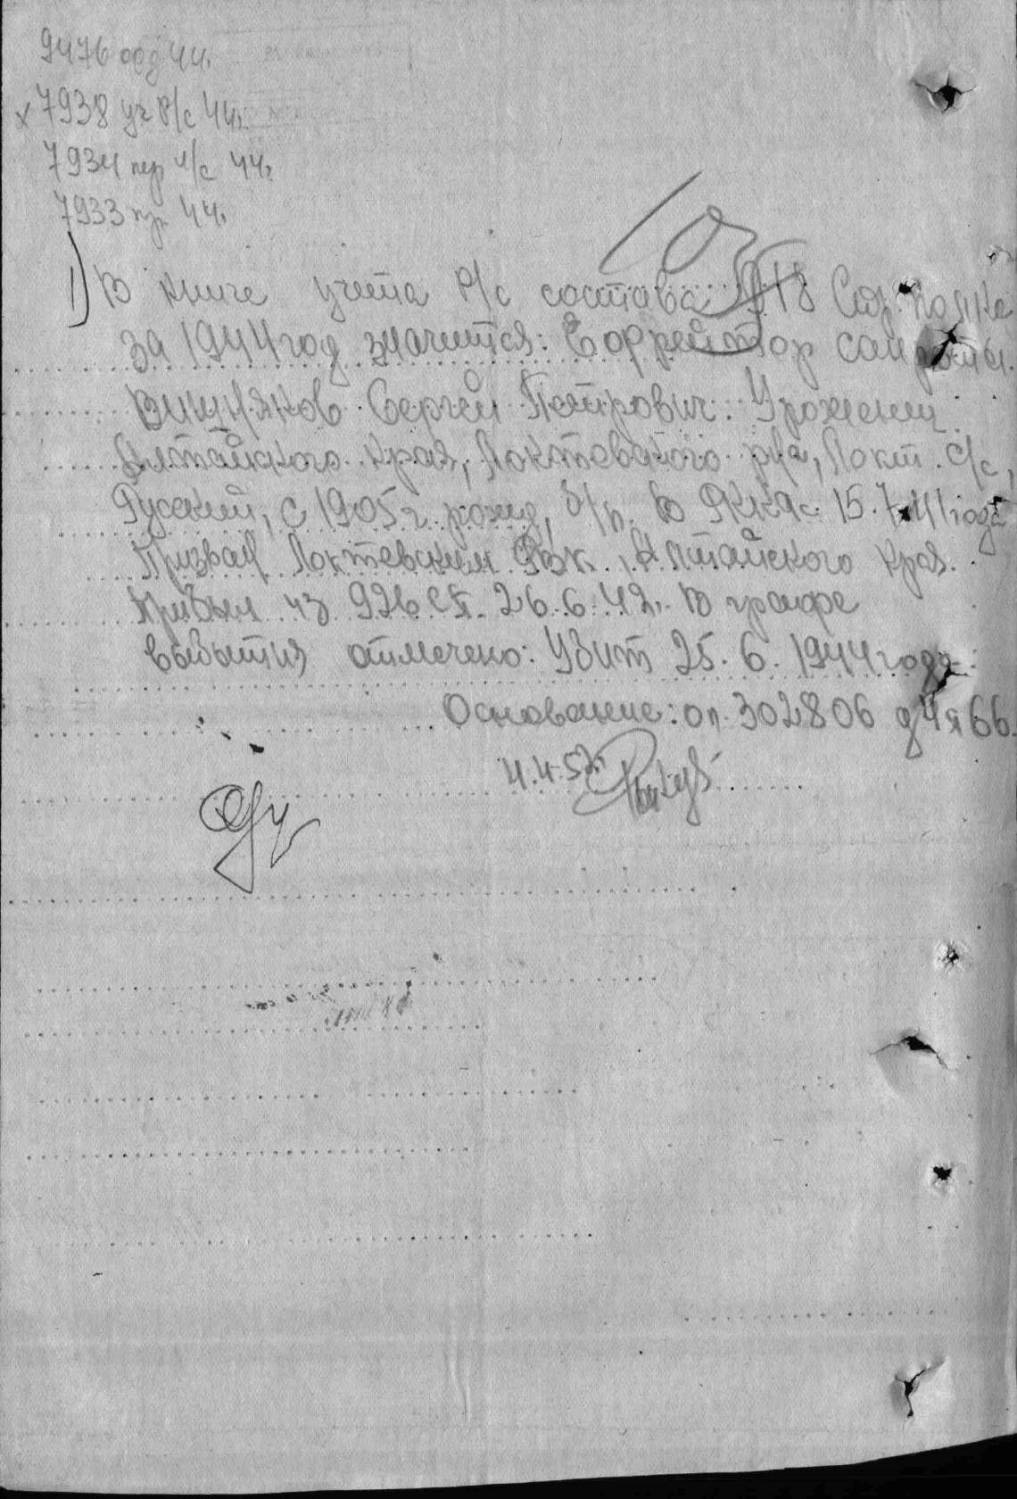 9476 орд 44г.
х 7938 уч Р/с 44г.
7934 пер л/с 44г.
7933 пр. 44г.
1) В книге учета Р/с состава 918 Сп. полка
за 1944 год значится: Ефрейтор
Вишняков Сергей Петрович. Уроженец
Алтайского края, Локтевского р-на, Локт. с/с,
Русский, с 1905 г. рожд, б/п. В РККА с 15.7.41 года
Призван Локтевским РВК, Алтайского края.
Прибыл из 926 сп. 26.6.42г. В графе
выбытия отмечено: Убит 25.6.1944 года.
Основание: оп. 302806 д 4 л 66.
4.4.52г.